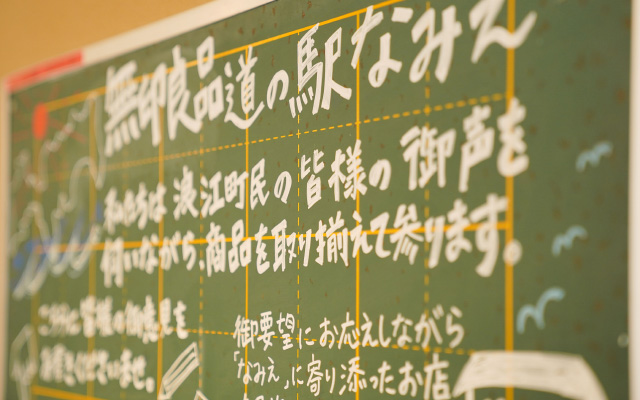 無印良品道の駅なみえ
私たちは浪江町民の皆様の御声を
伺いながら、商品を取り揃えて参ります。
こちらに皆様の御意見を
お書きくださいませ。
御要望にお応えしながら
「なみえ」に寄り添ったお店